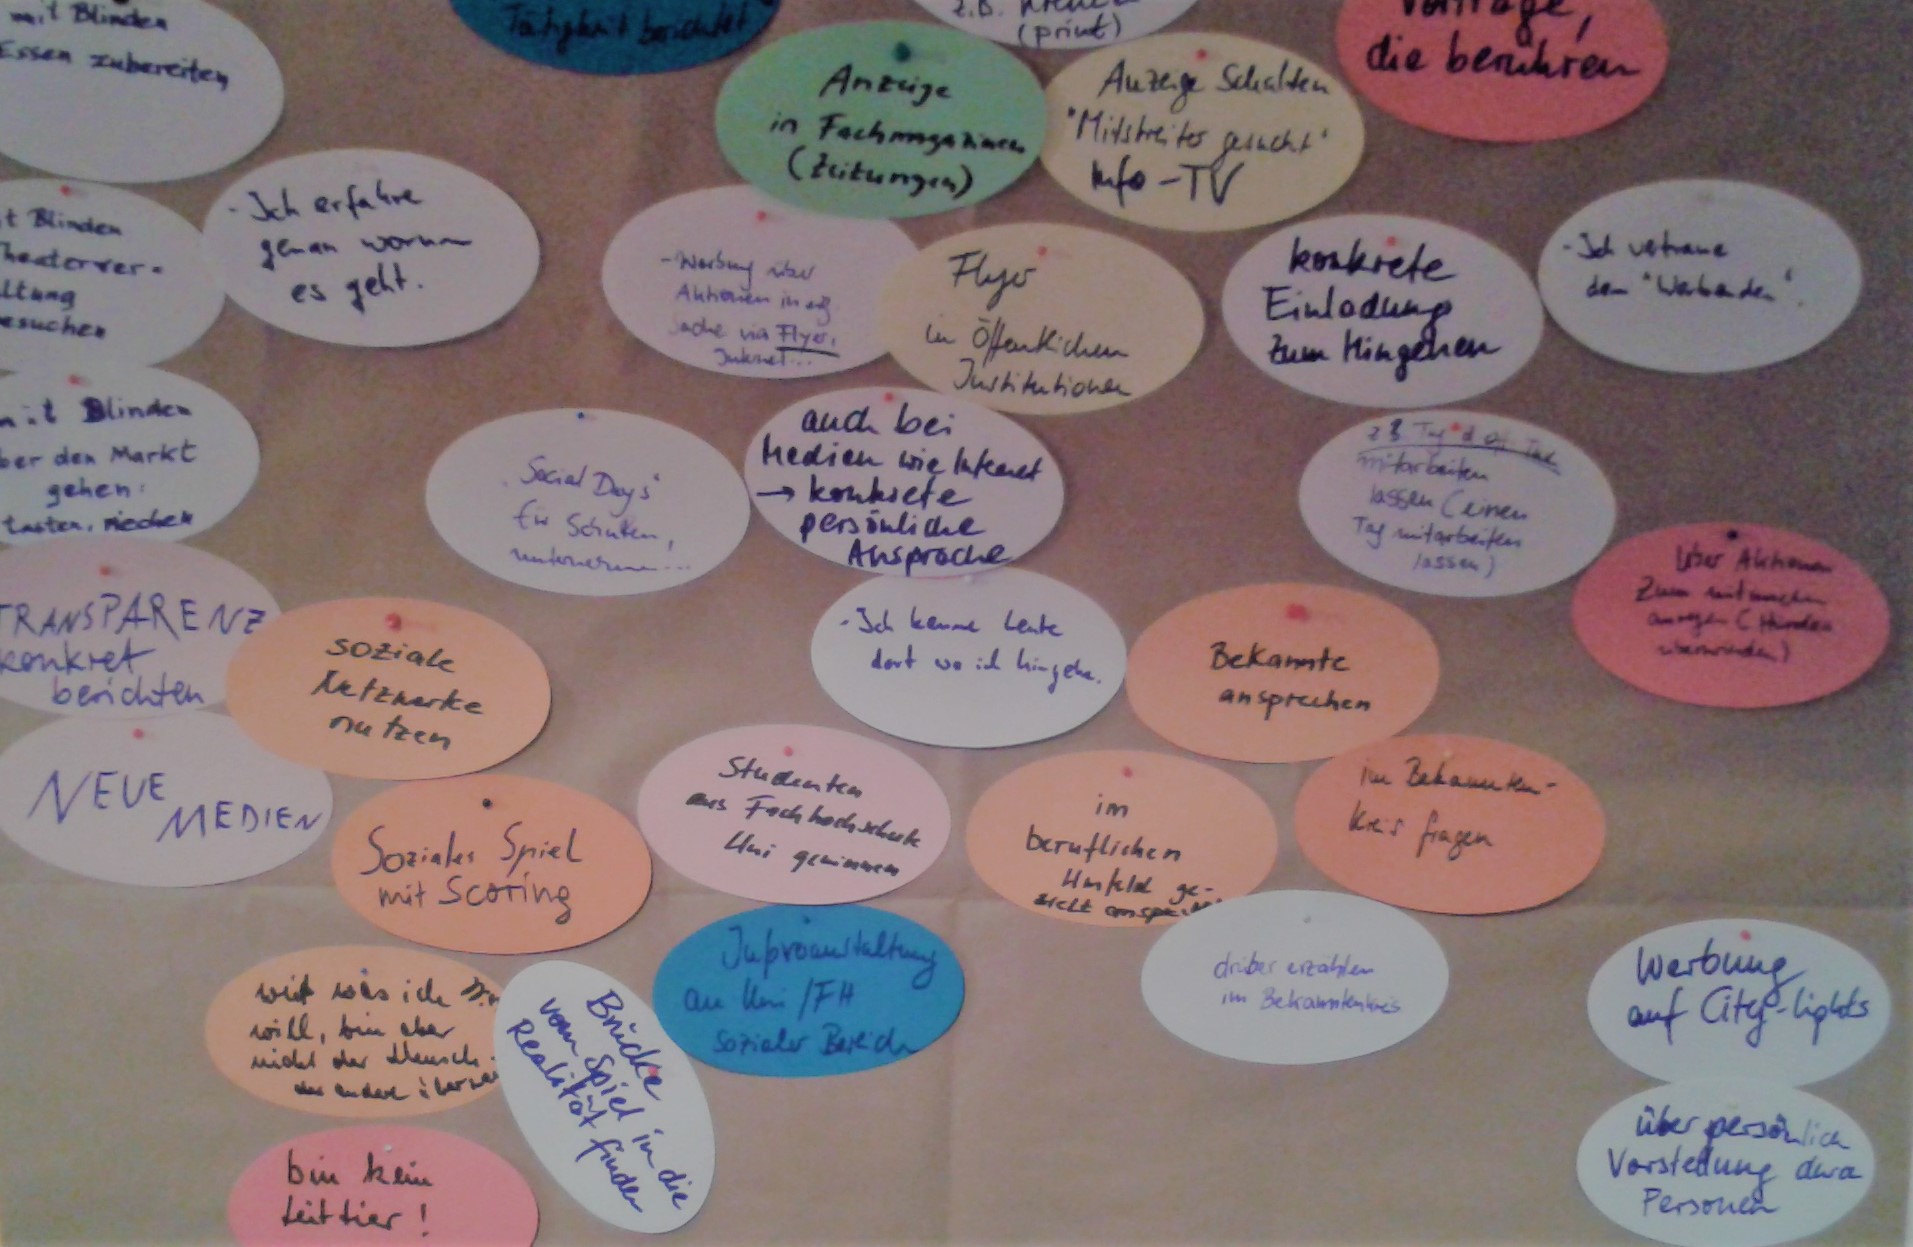 mit Blinden
Essen zubereiten
Tätigkeit berichtet
z.B.
(print)
Vorträge,
die berühren
Anzeige
in Fachmagazinen
(Zeitungen)
Anzeige Schalten
"Mitstreiter gesucht"
Info-TV
t Blinden
heaterver-
ltung
esuchen
- Ich erfahre
genau worum
es geht.
- Werbung über
Aktionen in
Sache via Flyer,
Internet...
Flyer
in Öffentlichen
Institutionen
konkrete
Einladung
zum Hingehen
- Ich vertraue
dem "Werbenden".
mit Blinden
ber den Markt
gehen:
tasten, riechen
"Social Days"
für Schulen,
unternehmen...
auch bei
Medien wie Internet
→ konkrete
persönliche
Ansprache
z B Tag d Off. Tür
mitarbeiten
lassen (einen
Tag mitarbeiten
lassen)
Über Aktionen
zum mitmachen
anregen (Hürden
überwinden)
TRANSPARENZ
konkret
berichten
soziale
Netzwerke
nutzen
- Ich kenne Leute
dort wo ich hingehe.
Bekannte
ansprechen
NEUE
MEDIEN
Soziales Spiel
mit Scoring
Studenten
aus Fachhochschule
Uni gewinnen
im
beruflichen
Umfeld ge-
zielt
im Bekannten-
kreis fragen
Infoveranstaltung
an Uni/FH
sozialer Bereich
drüber erzählen
im Bekanntenkreis
Werbung
auf City-lights
was ich
will, bin aber
nicht der Mensch
der andere
Brücke
vom Spiel in die
Realität finden
bin kein
Leittier!
über persönlich
Vorstellung durch
Personen